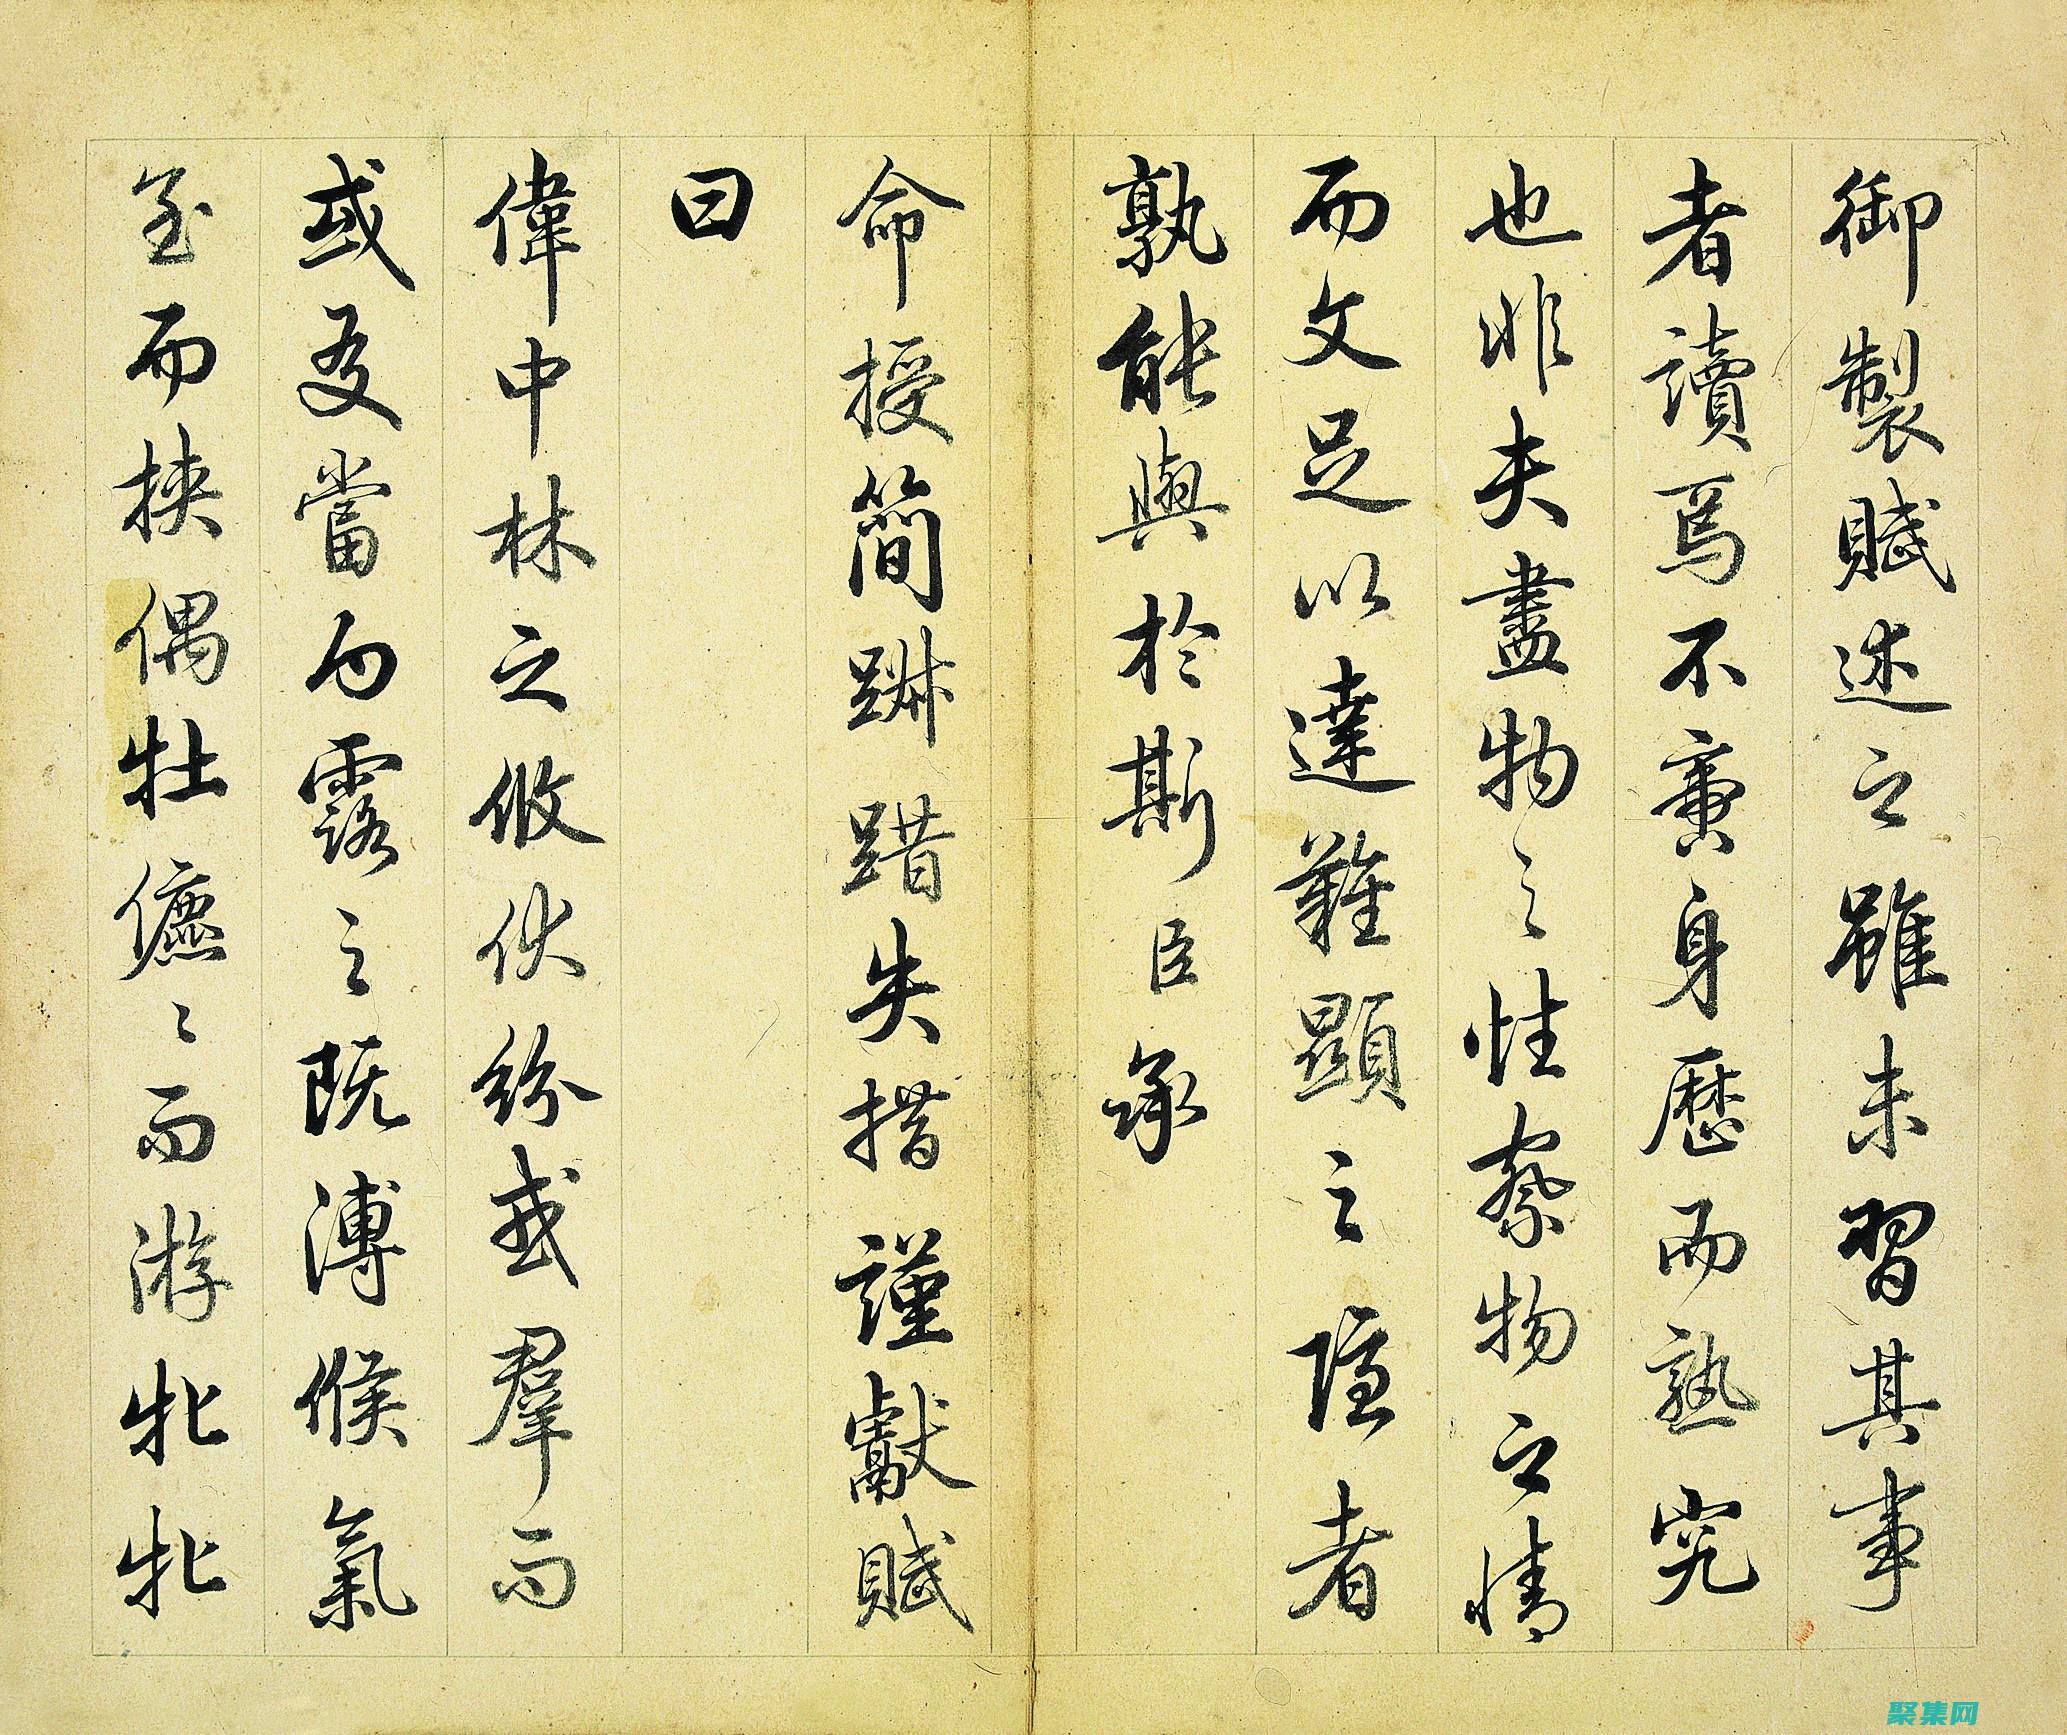 御製賦述之雖未習其事
者讀焉不啻身歷而熟究
也非夫盡物之性察物之情
而文足以達難顯之隱者
孰能與於斯臣承
命授簡踧踖失措謹獻賦
曰
偉中林之攸伏紛或羣而
或友當白露之既溥候氣
至而挾偶牡儦儦而游牝牝
聚集网